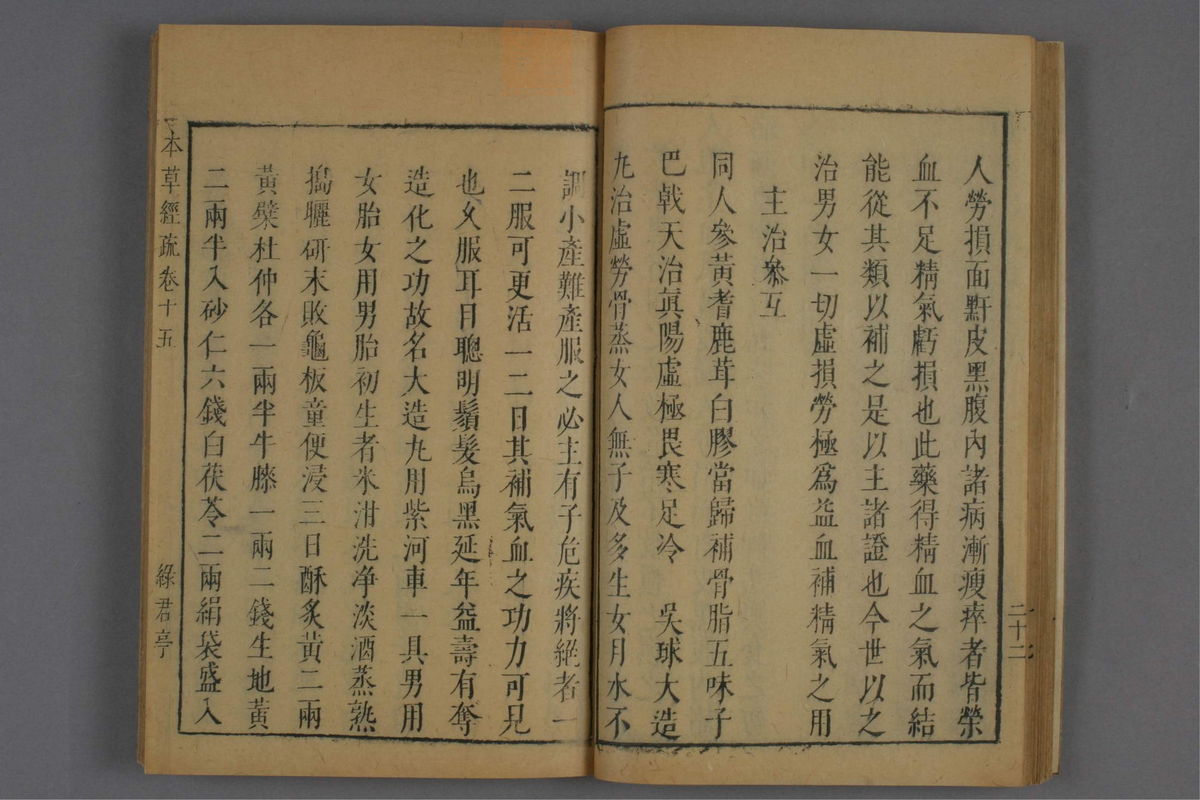 人勞損面䵟皮黑腹內諸病漸瘦瘁者皆榮
血不足精氣虧損也此藥得精血之氣而結
能從其類以補之是以主諸證也今世以之
治男女一切虛損勞極為益血補精氣之用
主治參互
同人參黃耆鹿茸白膠當歸補骨脂五味子
巴戟天治眞陽虛極畏寒足冷 吳球大造
丸治虛勞骨蒸女人無子及多生女月水不
二十二
調小產難產服之必主有子危疾將絕者一
二服可更活一二日其補氣血之功力可見
也久服耳目聰明鬚髮烏黑延年益壽有奪
造化之功故名大造丸用紫河車一具男用
女胎女用男胎初生者米泔洗净淡酒蒸熟
搗曬研末敗龜板童便浸三日酥炙黃二兩
黃檗杜仲各一兩半牛膝一兩二錢生地黃
二兩半入砂仁六錢白茯苓二兩絹袋盛入
本草經疏卷十五
綠君亭